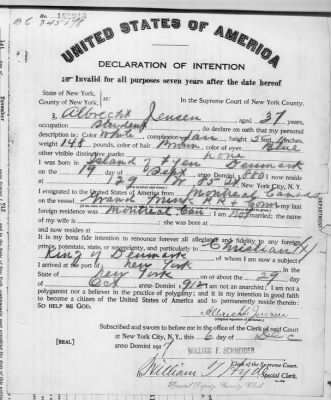 No. 168213
UNITED STATES OF AMERICA
DECLARATION OF INTENTION
Invalid for all purposes seven years after the date hereof
State of New York,
County of New York,
ss:
In the Supreme Court of New York County.
I, Albrecht Jensen aged 37 years,
occupation Student, do declare on oath that my personal
description is: Color White, complexion Fair, height feet inches,
weight 148 pounds, color of hair Brown, color of eyes Blue
other visible distinctive marks none
I was born in Island of Fyen Denmark
on the 19 day of Sept, anno Domini 1880; I now reside
at 129 New York City, N. Y.
I emigrated to the United States of America from Montreal Canada
on the vessel Grand Trunk R R; my last
foreign residence was Montreal, Can; I am not married; the name
of my wife is ; she was born at
and now resides at
It is my bona fide intention to renounce forever all allegiance and fidelity to any foreign
prince, potentate, state, or sovereignty, and particularly to Christian X
King of Denmark of whom I am now a subject;
I arrived at the port of New York, in the
State of New York on or about the 29 day
of Oct, anno Domini 1912; I am not an anarchist; I am not a
polygamist nor a believer in the practice of polygamy; and it is my intention in good faith
to become a citizen of the United States of America and to permanently reside therein:
SO HELP ME GOD.
Albrecht Jensen
Subscribed and sworn to before me in the office of the Clerk of said Court
at New York City, N. Y., this 6 day of Dec
[SEAL]
anno Domini 1917
WILLIAM F. SCHNEIDER
Clerk of the Supreme Court.
Special Clerk.